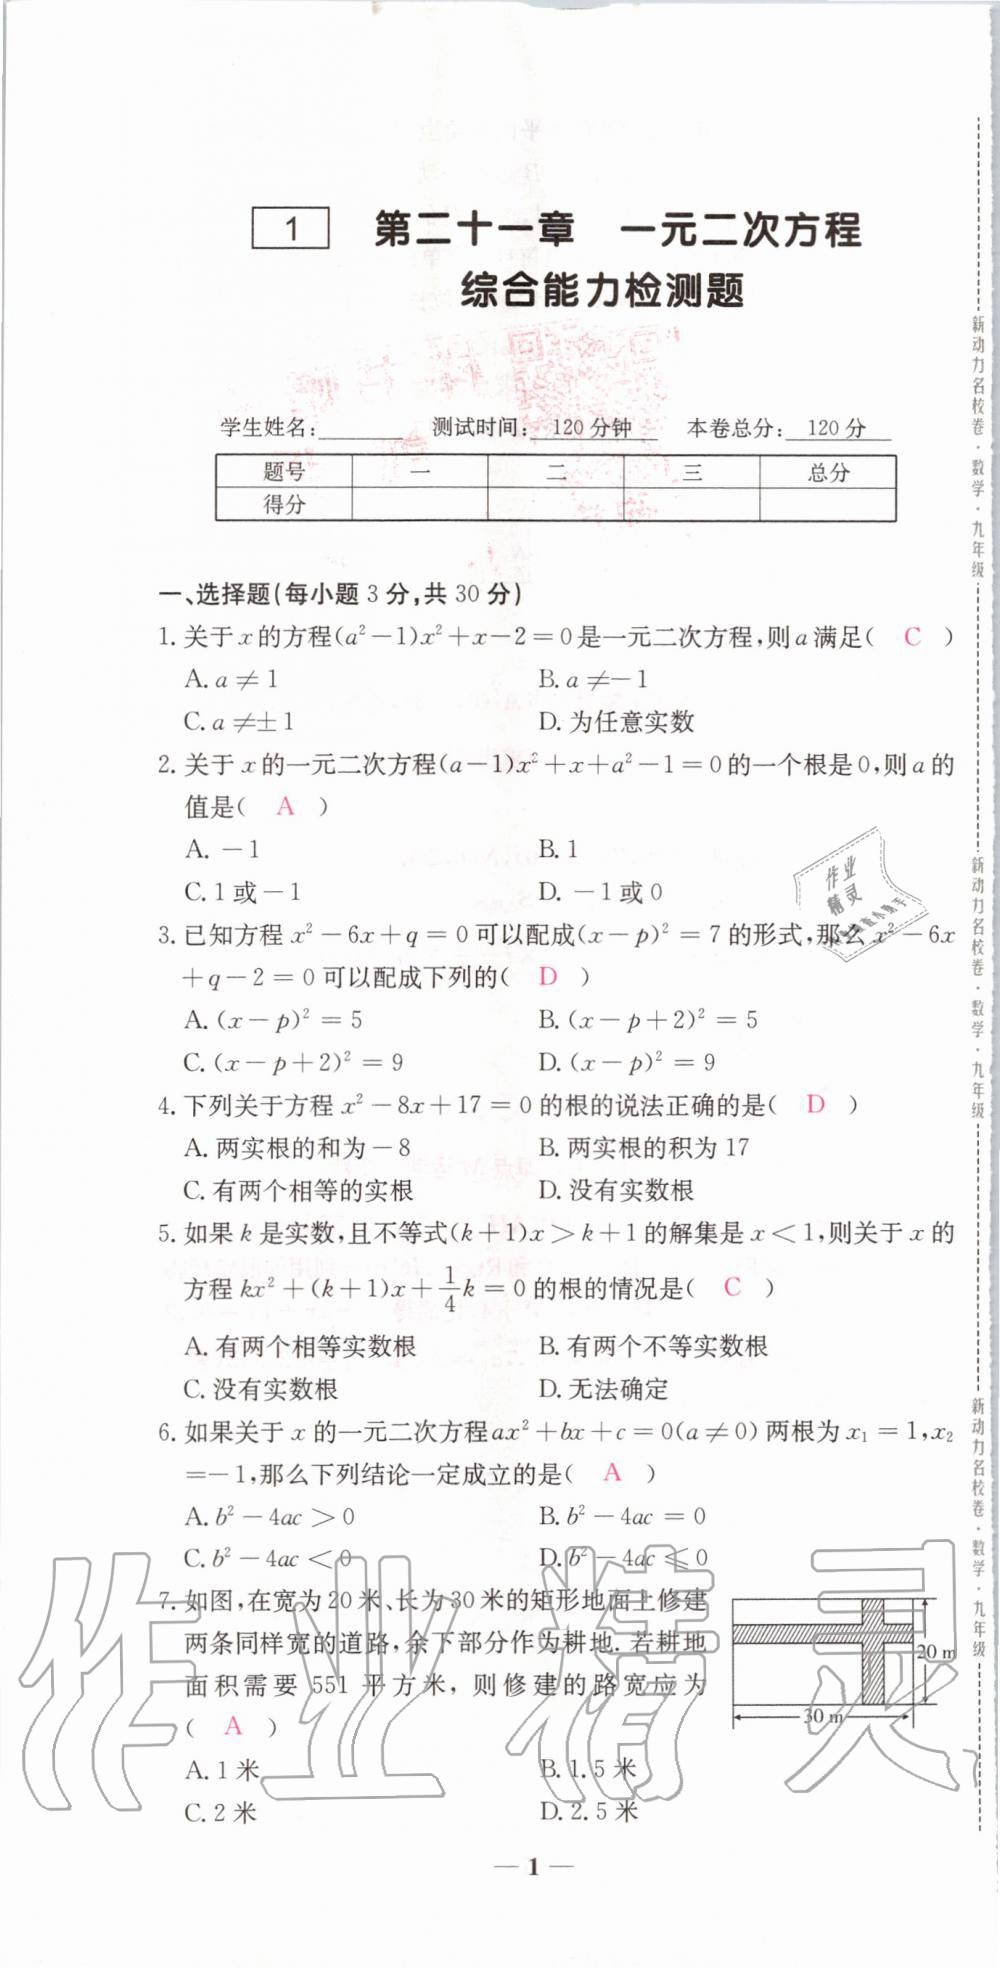 1 第二十一章 一元二次方程
综合能力检测题
学生姓名:______ 测试时间: 120分钟 本卷总分: 120分
题号 一 二 三 总分
得分
一、选择题(每小题3分,共30分)
1. 关于x的方程(a²-1)x²+x-2=0是一元二次方程,则a满足( C )
A. a≠1 B. a≠-1
C. a≠±1 D. 为任意实数
2. 关于x的一元二次方程(a-1)x²+x+a²-1=0的一个根是0,则a的
值是( A )
A. -1 B. 1
C. 1或-1 D. -1或0
3. 已知方程x²-6x+q=0可以配成(x-p)²=7的形式,那么x²-6x
+q-2=0可以配成下列的( D )
A. (x-p)²=5 B. (x-p+2)²=5
C. (x-p+2)²=9 D. (x-p)²=9
4. 下列关于方程x²-8x+17=0的根的说法正确的是( D )
A. 两实根的和为-8 B. 两实根的积为17
C. 有两个相等的实根 D. 没有实数根
5. 如果k是实数,且不等式(k+1)x>k+1的解集是x<1,则关于x的
方程kx²+(k+1)x+1/4k=0的根的情况是( C )
A. 有两个相等实数根 B. 有两个不等实数根
C. 没有实数根 D. 无法确定
6. 如果关于x的一元二次方程ax²+bx+c=0(a≠0)两根为x₁=1,x₂
=-1,那么下列结论一定成立的是( A )
A. b²-4ac>0 B. b²-4ac=0
C. b²-4ac<0 D. b²-4ac≤0
7. 如图,在宽为20米、长为30米的矩形地面上修建
两条同样宽的道路,余下部分作为耕地. 若耕地
面积需要551平方米,则修建的路宽应为
( A )
A. 1米 B. 1.5米
C. 2米 D. 2.5米
20 m
30 m
— 1 —
新动力名校卷·数学·九年级
新动力名校卷·数学·九年级
新动力名校卷·数学·九年级
作业
精灵
作业精灵